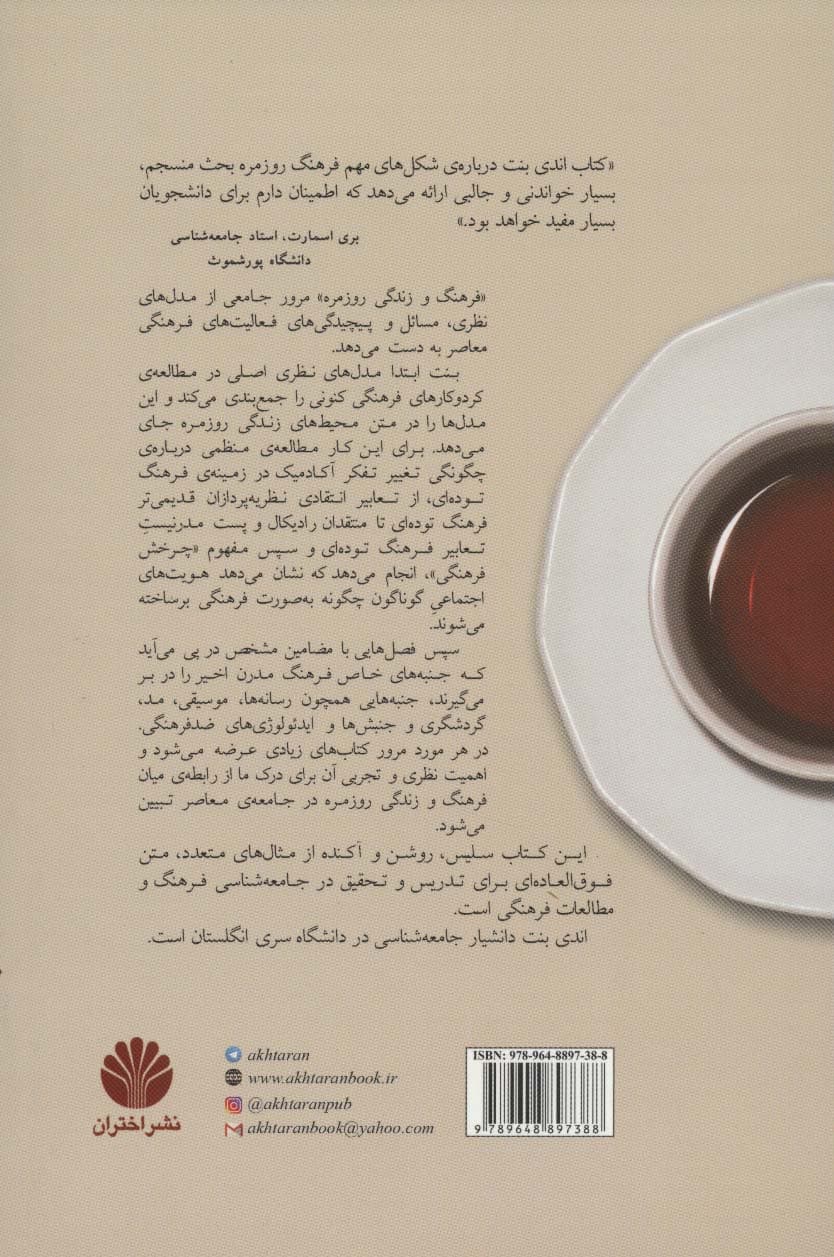 «کتاب اندی بنت درباره‌ی شکل‌های مهم فرهنگ روزمره بحث منسجم،
بسیار خواندنی و جالبی ارائه می‌دهد که اطمینان دارم برای دانشجویان
بسیار مفید خواهد بود.»
بری اسمارت، استاد جامعه‌شناسی
دانشگاه پورشموث
«فرهنگ و زندگی روزمره» مرور جامعی از مدل‌های
نظری، مسائل و پیچیدگی‌های فعالیت‌های فرهنگی
معاصر به دست می‌دهد.
بنت ابتدا مدل‌های نظری اصلی در مطالعه‌ی
کردوکارهای فرهنگی کنونی را جمع‌بندی می‌کند و این
مدل‌ها را در متن محیط‌های زندگی روزمره جای
می‌دهد. برای این کار مطالعه‌ی منظمی درباره‌ی
چگونگی تغییر تفکر آکادمیک در زمینه‌ی فرهنگ
توده‌ای، از تعابیر انتقادی نظریه‌پردازان قدیمی‌تر
فرهنگ توده‌ای تا منتقدان رادیکال و پست مدرنیستِ
تعابیر فرهنگ توده‌ای و سپس مفهوم «چرخش
فرهنگی»، انجام می‌دهد که نشان می‌دهد هویت‌های
اجتماعیِ گوناگون چگونه به‌صورت فرهنگی برساخته
می‌شوند.
سپس فصل‌هایی با مضامین مشخص در پی می‌آید
که جنبه‌های خاص فرهنگ مدرن اخیر را در بر
می‌گیرند، جنبه‌هایی همچون رسانه‌ها، موسیقی، مد،
گردشگری و جنبش‌ها و ایدئولوژی‌های ضدفرهنگی.
در هر مورد مرور کتاب‌های زیادی عرضه می‌شود و
اهمیت نظری و تجربی آن برای درک ما از رابطه‌ی میان
فرهنگ و زندگی روزمره در جامعه‌ی معاصر تبیین
می‌شود.
این کتاب سلیس، روشن و آکنده از مثال‌های متعدد، متن
فوق‌العاده‌ای برای تدریس و تحقیق در جامعه‌شناسی فرهنگ و
مطالعات فرهنگی است.
اندی بنت دانشیار جامعه‌شناسی در دانشگاه سری انگلستان است.
نشر اختران
akhtaran
www.akhtaranbook.ir
@akhtaranpub
akhtaranbook@yahoo.com
ISBN: 978-964-8897-38-8
9 789648 897388